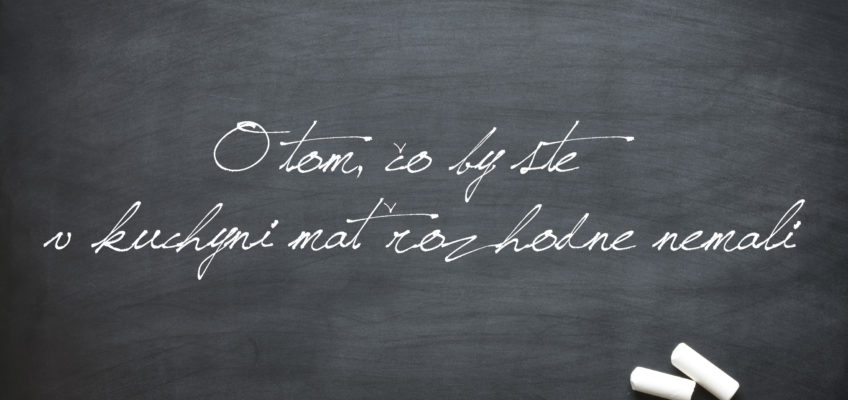 O tom, čo by ste
v kuchyni mať rozhodne nemali